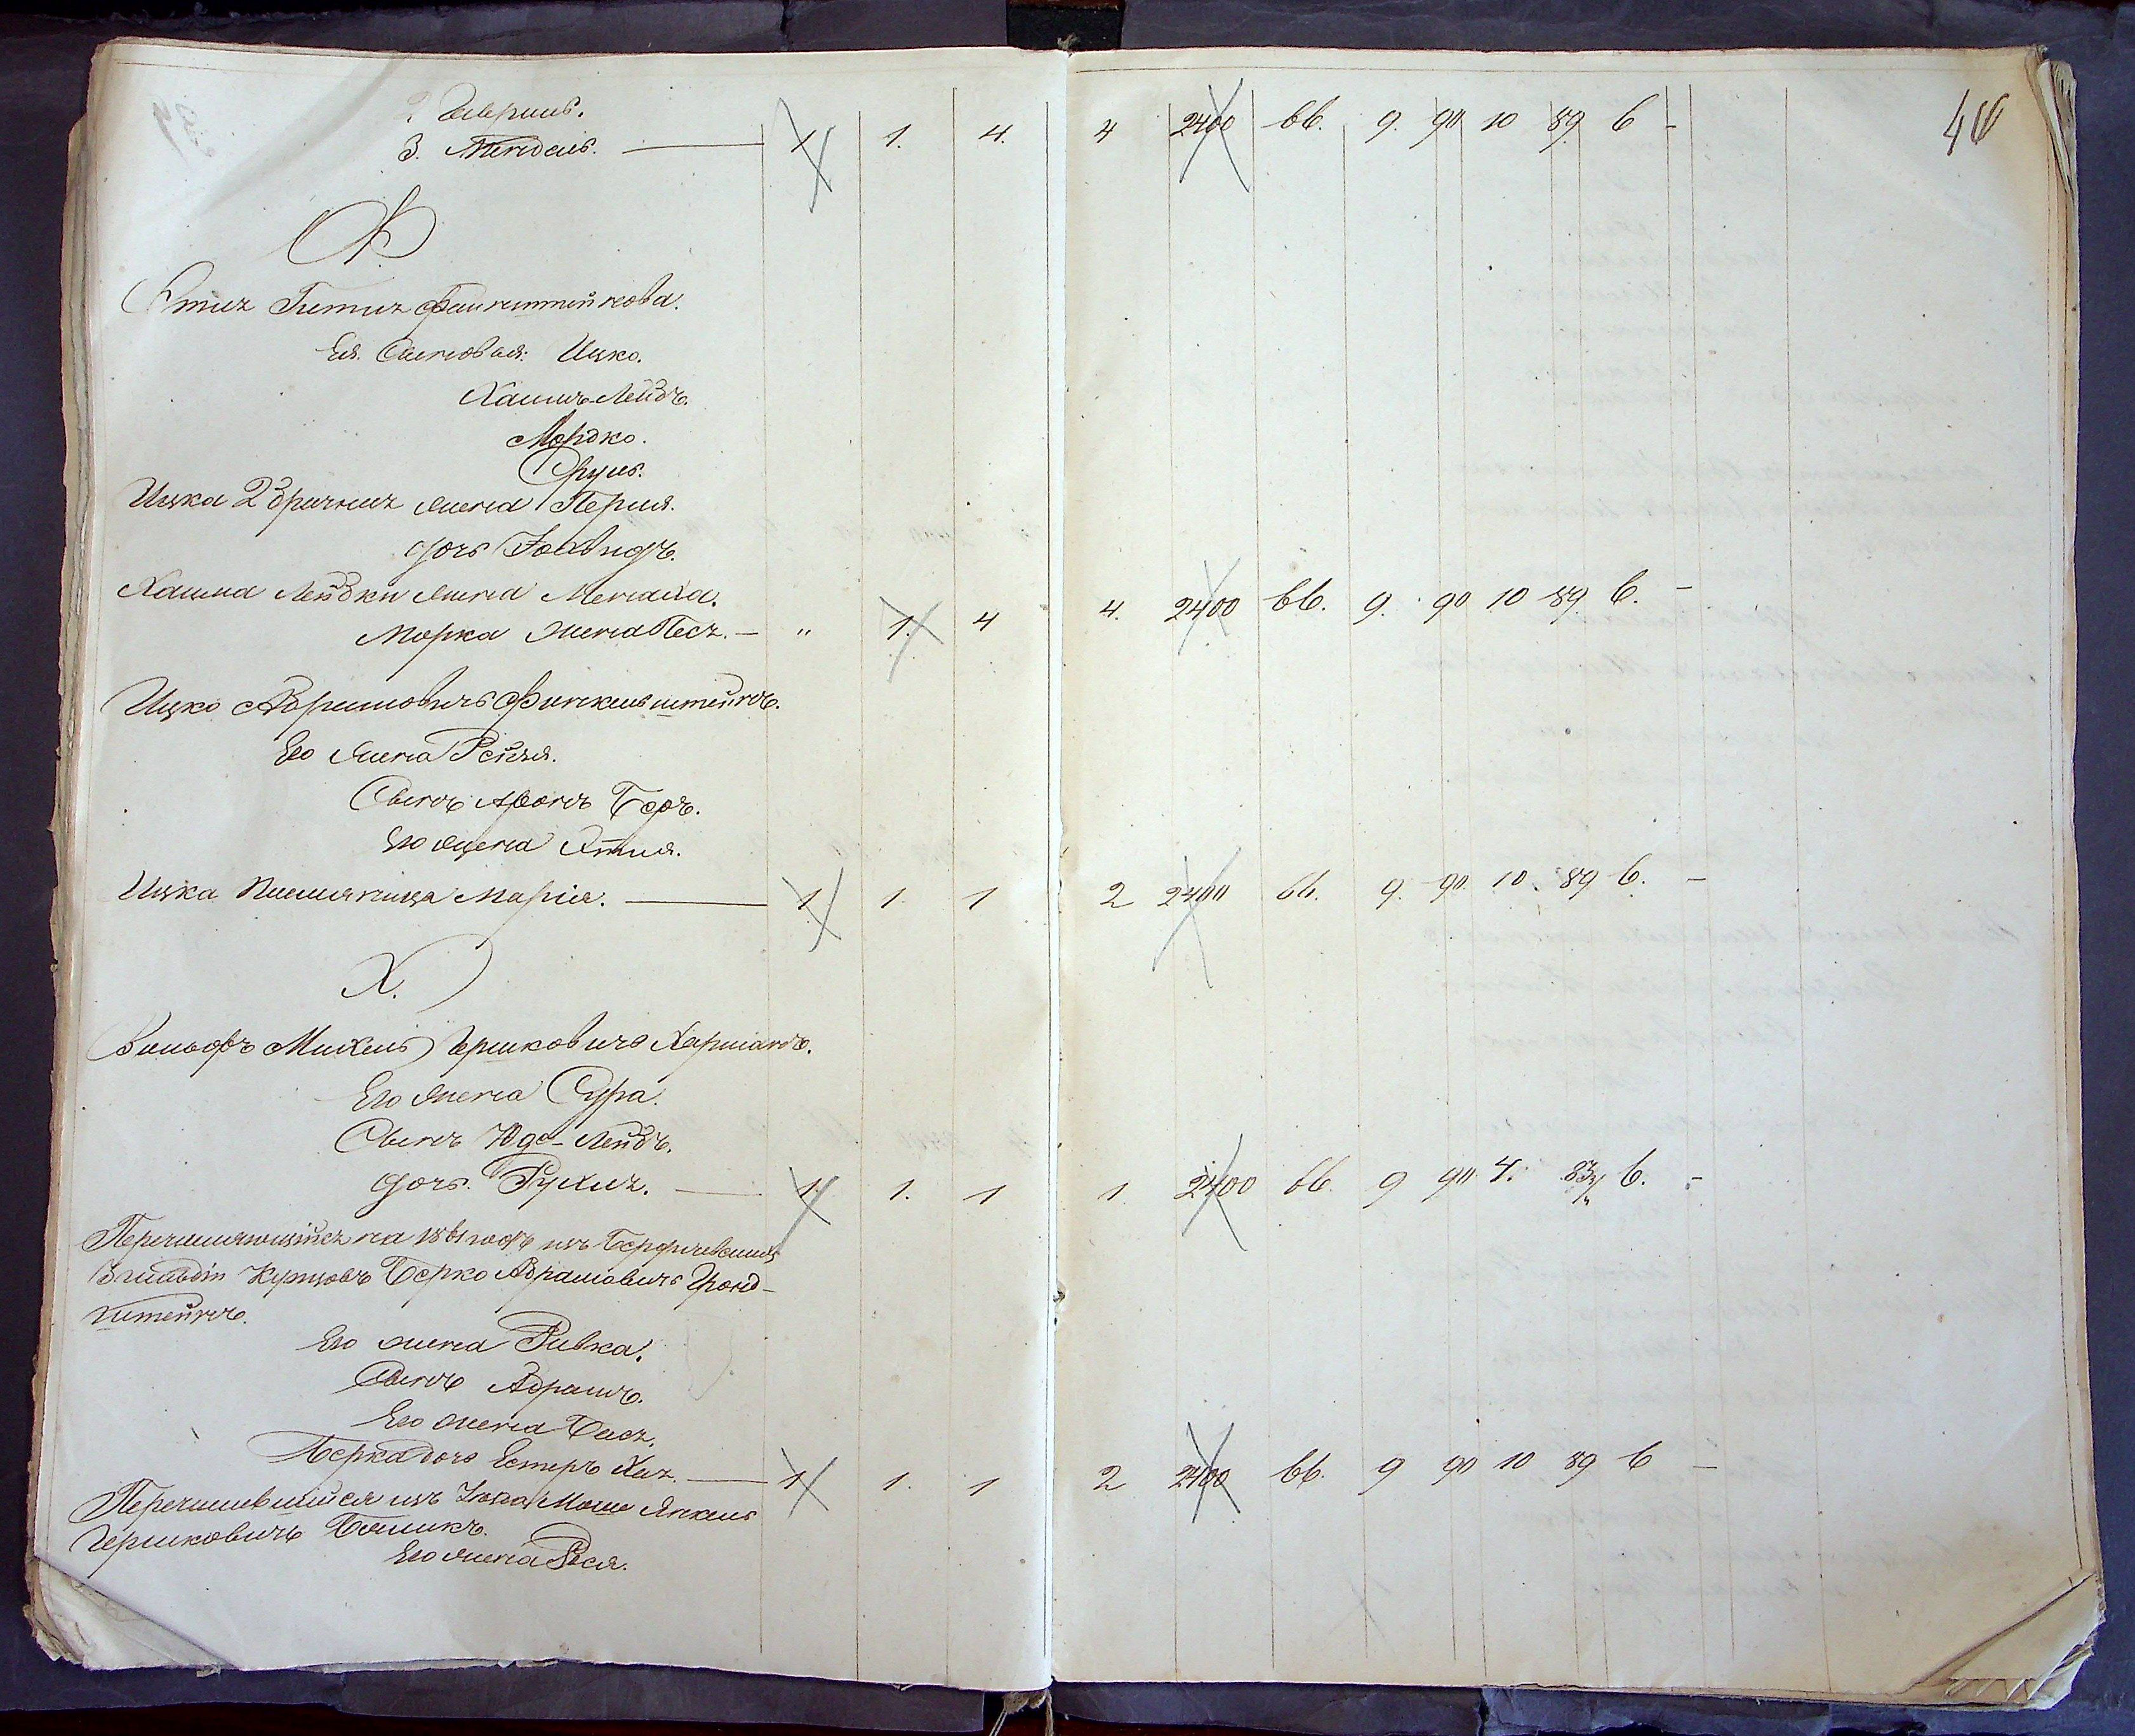 3. Мендель. — 1 1. 4. 4 2400 66. 9. 90 10 89 6 –
40
Ф
Ея Сыновья: Ицко.
Хаимъ-Лейбъ.
Мордко.
Сруль.
Ицка 2 брачная жена Перля.
дочь
Хаима Лейбки жена
Морка жена Песя. — " 1. 4 4. 2400 66. 9. 90 10 89 6. –
Ицко Абрамовичъ Финкельштейнъ.
Его жена Рейзя.
Сынъ Аронъ Беръ.
Его жена Этля.
Ицка племянница Марія. — 1 1 1 2 2400 66. 9. 90 10. 89 6. –
Х.
Вольфъ Михель Гершковичъ Харманъ.
Его жена Сура.
Сынъ Юдо-Лейбъ.
дочь Рухля. — 1 1. 1 1. 2400 66. 9 90 4. 83 6. –
Перечисляющійся на 1861 годъ изъ Бердичевскихъ
3 гильдіи Купцовъ Берко Абрамовичъ
штейнъ.
Его жена Ривка.
Сынъ Абрамъ.
Его жена Бася.
Берка дочь Естеръ Хая — 1 1. 1 2 2400 66. 9 90 10 89 6 –
Перечислившійся изъ Мошко Янкель
Гершковичъ
Его жена Рося.